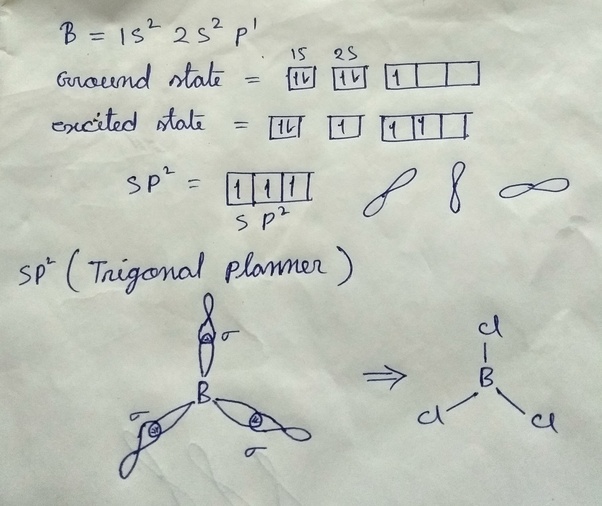 B = 1s² 2s² p¹
1s 2s
Ground state = 1↿⇂ 1↿⇂ 1
excited state = 1↿⇂ 1 1 1
sp² = 1 1 1
s p²
sp² (Trigonal planner)
σ
B
σ
σ
⇒
Cl
B
Cl
Cl